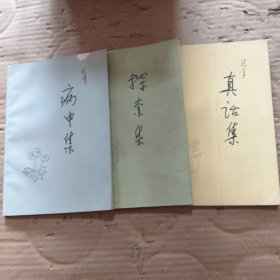 巴金
病中集
探索集
巴金
真话集